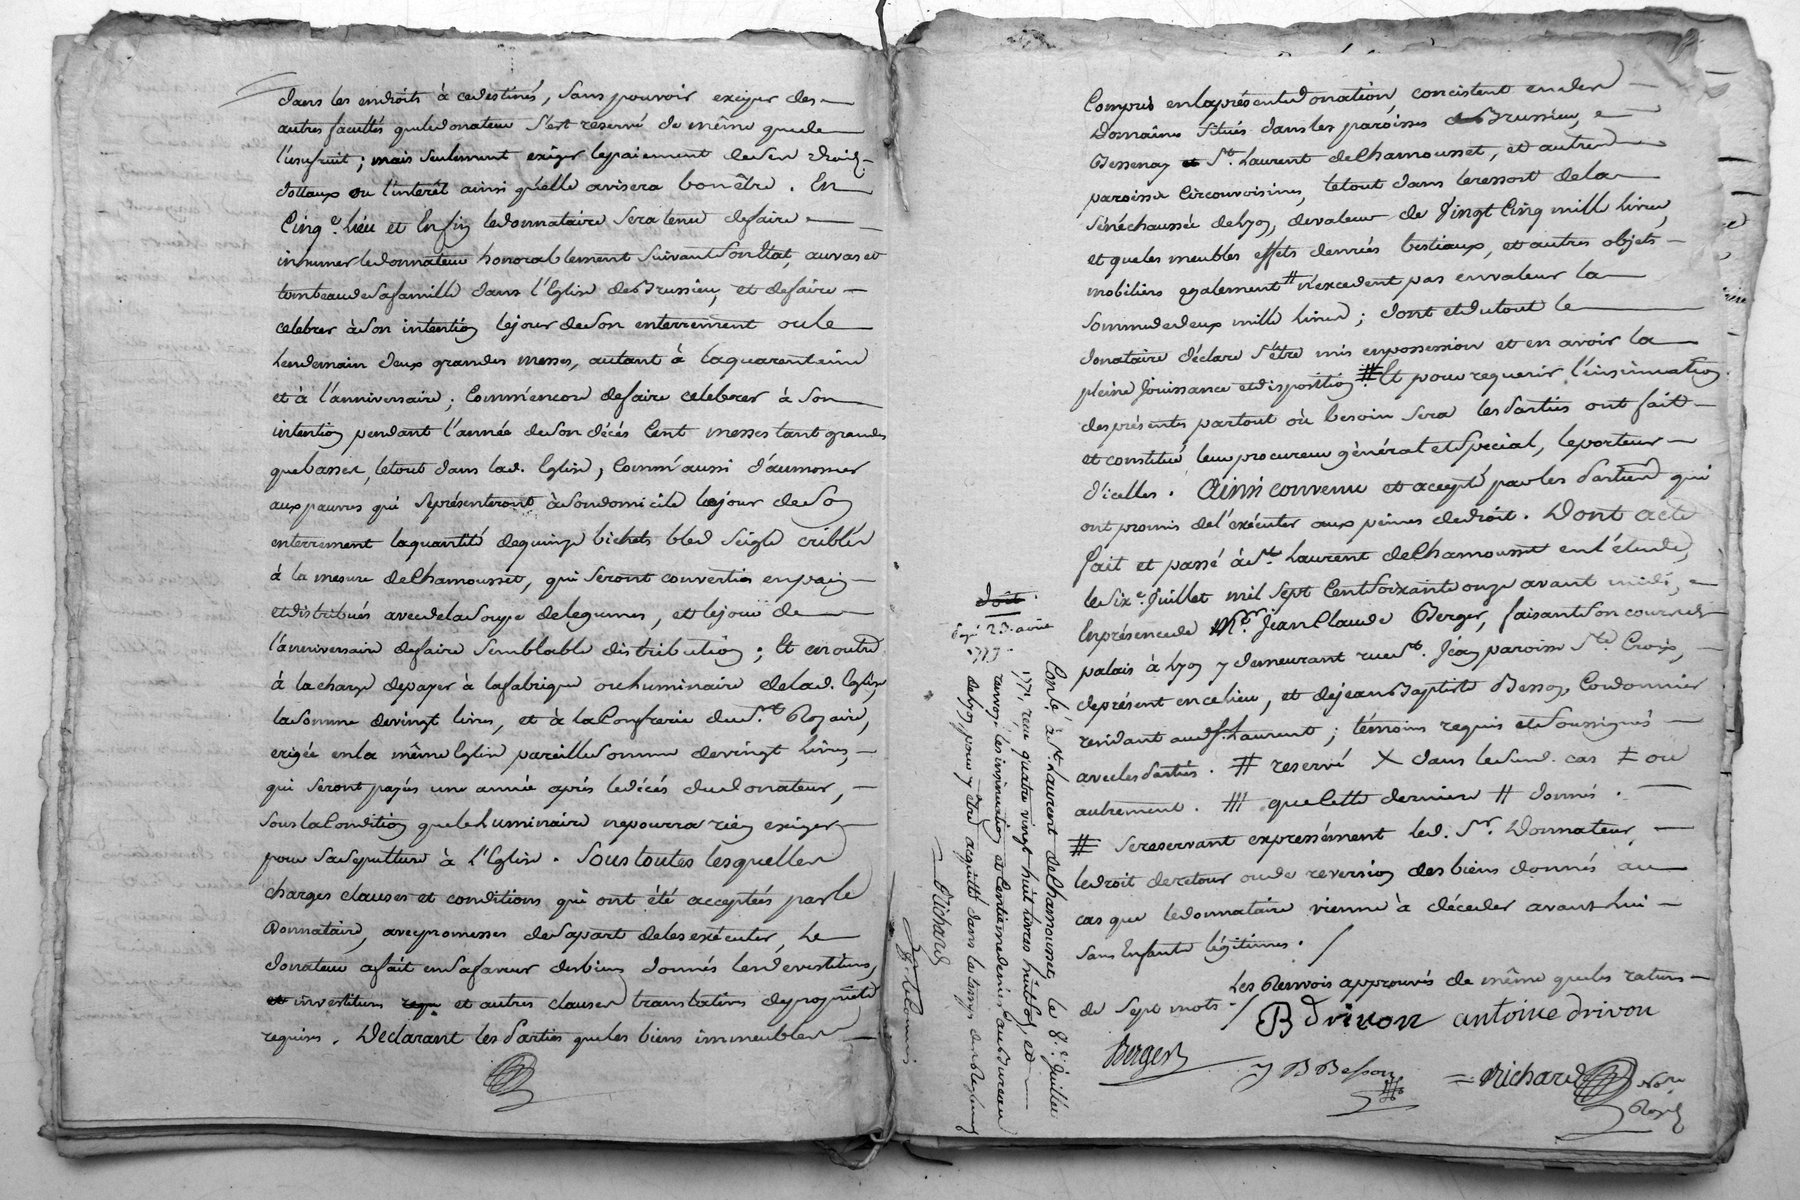 dans les endroits à ce destinés, sans pouvoir exiger des
autres facultés que le donateur s'est reservé de même que de
l'usufruit; mais seulement exiger le paiement de ses droits
dottaux ou l'interêt ainsi qu'elle avisera bon être. En
Cinq.e lieu et Enfin le donnataire sera tenu de faire
inhumer le donnateur honorablement suivant son Etat, au vas et
tombeau de sa famille dans l'Eglise de Brussieu, et de faire
celebrer à son intention le jour de son enterrement ou le
lendemain deux grandes messes, autant à la quarantaine
et à l'anniversaire; Comm'encore de faire celebrer à son
intention pendant l'année de son décés Cent messes tant grandes
que basses, le tout dans lad. Eglise, Comm'aussi d'aumoner
aux pauvres qui se présenteront à son domicile le jour de son
enterrement la quantité de quinze bichets bled seigle criblés
à la mesure de Chamousset, qui seront convertis en pain
et distribués avec de la soupe de legumes, et le jour de
l'anniversaire de faire semblable distribution; Et en outre
à la charge de payer à la fabrique ou luminaire de lad. Eglise
la somme de vingt livres, et à la Confrerie du St. Rozaire,
erigée en la même Eglise pareille somme de vingt livres,
qui seront payés une année aprés le décés du donateur,
sous la Condition que le luminaire ne pourra rien exiger
pour sa sepulture à l'Eglise. Sous toutes lesquelles
charges clauses et conditions qui ont été acceptées par le
Donnataire, avec promesses de sa part de les exécuter, Le
donateur a fait en sa faveur des biens donnés les devestitures,
et investitures requ et autres clauses translatives de propriété
requises. Declarant les Parties que les biens immeubles
Compris en la présente donation, concistent en des
Domaines situés dans les paroisses de Brussieu,
Bessenay et St. Laurent de Chamousset, et autres
paroisses Circonvoisines, le tout dans le ressort de la
sénéchaussée de Lyon, de valeur de Vingt Cinq mille livres,
et que les meubles effets denrées bestiaux, et autres objets
mobiliers egalement # n'excedent pas en valeur la
somme de deux mille livres; dont et du tout le
donataire déclare s'être mis en possession et en avoir la
pleine Jouissance et disposition # Et pour requerir l'insinuation
des présentes partout où besoin sera les Parties ont fait
et constitué leur procureur général et spécial, le porteur
d'icelles. Ainsi convenu et accepté par les Parties qui
ont promis de l'exécuter aux peines de droit. Dont acte
fait et passé à St. Laurent de Chamousset en l'étude,
le six.e Juillet mil sept Cent soixante onze avant midi,
En présence de Mr. Jean Claude Berger, faisant son cours de
palais à Lyon y demeurant rue St. Jean paroisse Ste. Croix,
de présent en ce lieu, et de Jean Baptiste Besson, Cordonnier
residant aud. St. Laurent; témoins requis et soussignés
avec les Parties. # reservé X dans le susd. cas ‡ ou
autrement. /// que Cette derniere # donnés.
# se reservant expressément led. Sr. Donnateur
le droit de retour ou de reversion des biens donnés au
cas que le donnataire vienne à décéder avant lui
sans Enfants légitimes. /
Les Renvois approuvés de même que les ratures
de Sept mots. /
B Drivon antoine drivon
Berger
J B Besson
Richard No.re Royal
doit
Payé 23. avril
Conlé à St. Laurent de Chamousset, le 8.e Juillet
1771 reçu quatre vingt huit livres huit sols, et
renvoyé les insinuation et Centieme denier au Bureau
de Lyon, pour y être acquitté dans le temps de l'ordonnance
Richard